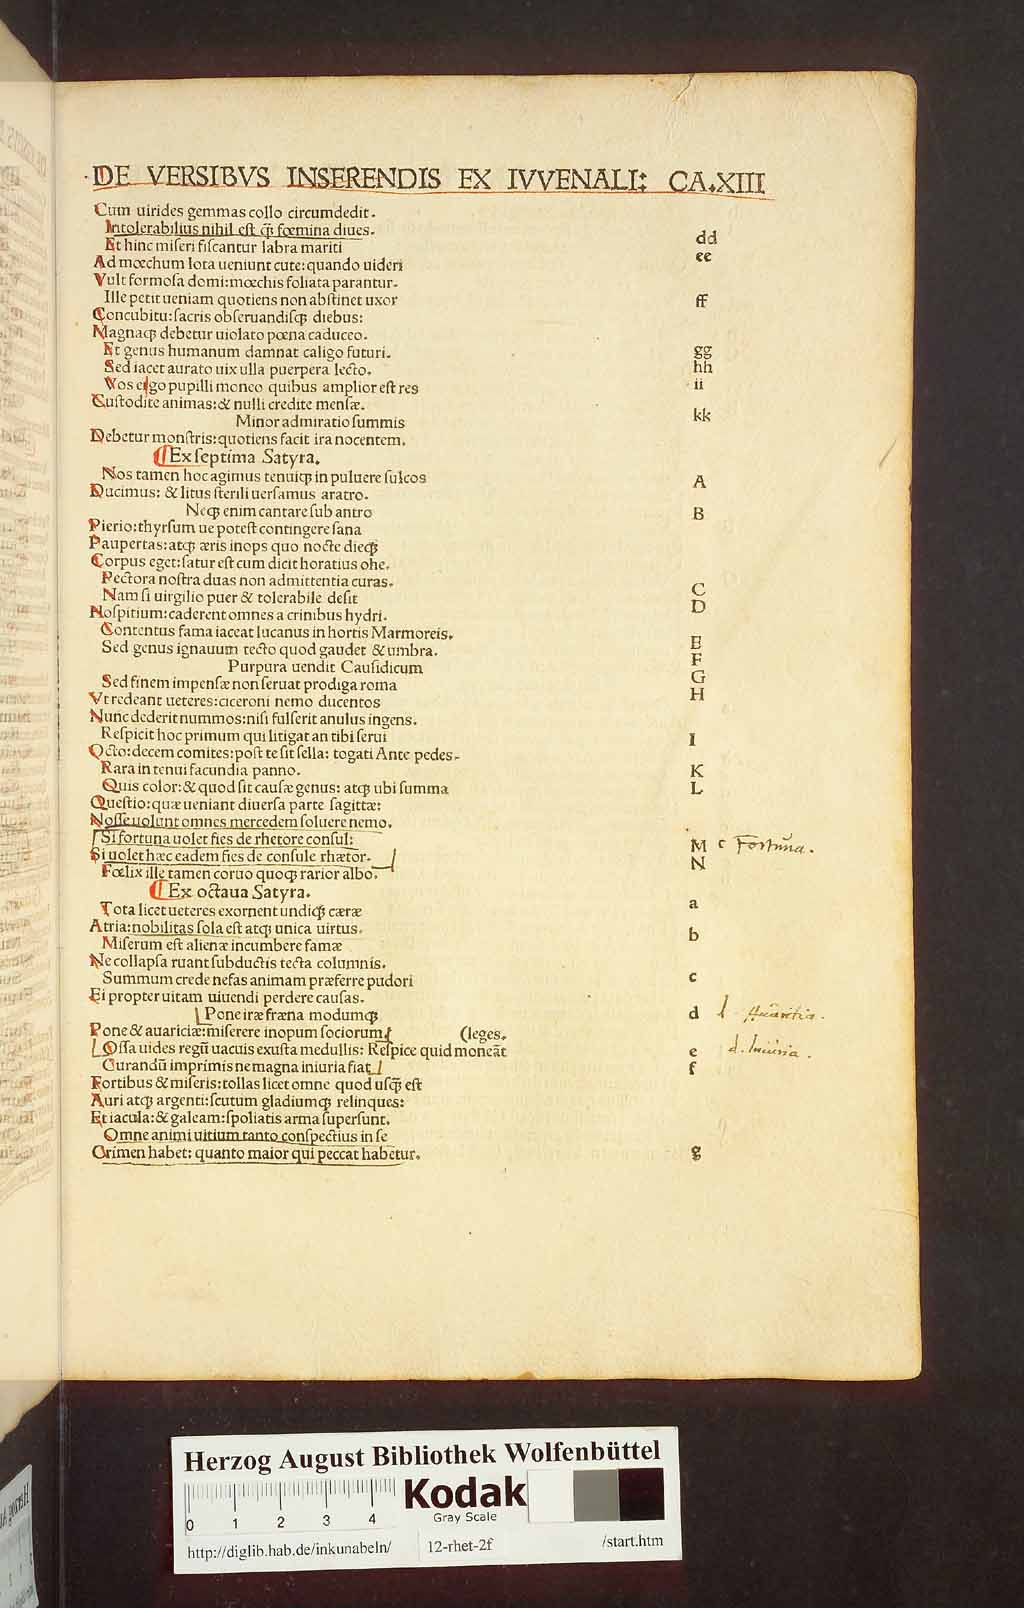 DE VERSIBVS INSERENDIS EX IVVENALI: CA.XIII
Cum uirides gemmas collo circumdedit.
Intolerabilius nihil eſt q̃ fœmina diues.
Et hinc miſeri fiſcantur labra mariti
dd
Ad mœchum lota ueniunt cute: quando uideri
ee
Vult formoſa domi: mœchis foliata parantur.
Ille petit ueniam quotiens non abſtinet uxor
ff
Concubitu: ſacris obſeruandiſq; diebus:
Magnaq; debetur uiolato pœna caduceo.
Et genus humanum damnat caligo futuri.
gg
Sed iacet aurato uix ulla puerpera lecto.
hh
Vos ergo pupilli moneo quibus amplior eſt res
ii
Cuſtodite animas: & nulli credite menſæ.
Minor admiratio ſummis
kk
Debetur monſtris: quotiens facit ira nocentem.
Ex ſeptima Satyra.
Nos tamen hoc agimus tenuiq; in puluere ſulcos
A
Ducimus: & litus ſterili uerſamus aratro.
Neq; enim cantare ſub antro
B
Pierio: thyrſum ue poteſt contingere ſana
Paupertas: atq; æris inops quo nocte dieq;
Corpus eget: ſatur eſt cum dicit horatius ohe.
Pectora noſtra duas non admittentia curas.
C
Nam ſi uirgilio puer & tolerabile deſit
D
Hoſpitium: caderent omnes a crinibus hydri.
Contentus fama iaceat lucanus in hortis Marmoreis.
E
Sed genus ignauum tecto quod gaudet & umbra.
F
Purpura uendit Cauſidicum
G
Sed finem impenſæ non ſeruat prodiga roma
H
Vt redeant ueteres: ciceroni nemo ducentos
Nunc dederit nummos: niſi fulſerit anulus ingens.
Reſpicit hoc primum qui litigat an tibi ſerui
I
Octo: decem comites: poſt te ſit ſella: togati Ante pedes.
Rara in tenui facundia panno.
K
Quis color: & quod ſit cauſæ genus: atq; ubi ſumma
L
Queſtio: quæ ueniant diuerſa parte ſagittæ:
Noſſe uolunt omnes mercedem ſoluere nemo.
Si fortuna uolet fies de rhetore conſul:
M c Fortuna.
Si uolet hæc eadem fies de conſule rhætor.
N
Fœlix ille tamen coruo quoq; rarior albo.
Ex octaua Satyra.
Tota licet ueteres exornent undiq; cæræ
a
Atria: nobilitas ſola eſt atq; unica uirtus.
Miſerum eſt alienæ incumbere famæ
b
Ne collapſa ruant ſubductis tecta columnis.
Summum crede nefas animam præferre pudori
c
Ei propter uitam uiuendi perdere cauſas.
Pone iræ fræna modumq;
d l. Auaritia.
Pone & auariciæ: miſerere inopum ſociorum
(leges.
Oſſa uides regũ uacuis exuſta medullis: Reſpice quid moneãt
e d. Iniuria.
Curandũ imprimis ne magna iniuria fiat
f
Fortibus & miſeris: tollas licet omne quod uſq̃ eſt
Auri atq; argenti: ſcutum gladiumq; relinques:
Et iacula: & galeam: ſpoliatis arma ſuperſunt.
Omne animi uitium tanto conſpectius in ſe
Crimen habet: quanto maior qui peccat habetur.
g
Herzog August Bibliothek Wolfenbüttel
Kodak
Gray Scale
0 1 2 3 4
http://diglib.hab.de/inkunabeln/ 12-rhet-2f /start.htm